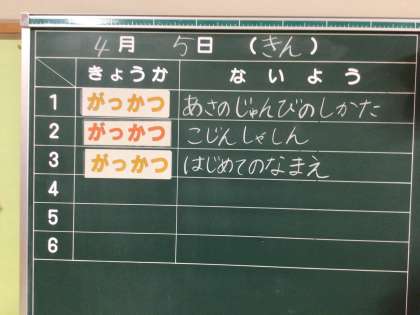 4月 5日 (きん)
きょうか ないよう
1 がっかつ あさのじゅんびのしかた
2 がっかつ こじんしゃしん
3 がっかつ はじめてのなまえ
4
5
6